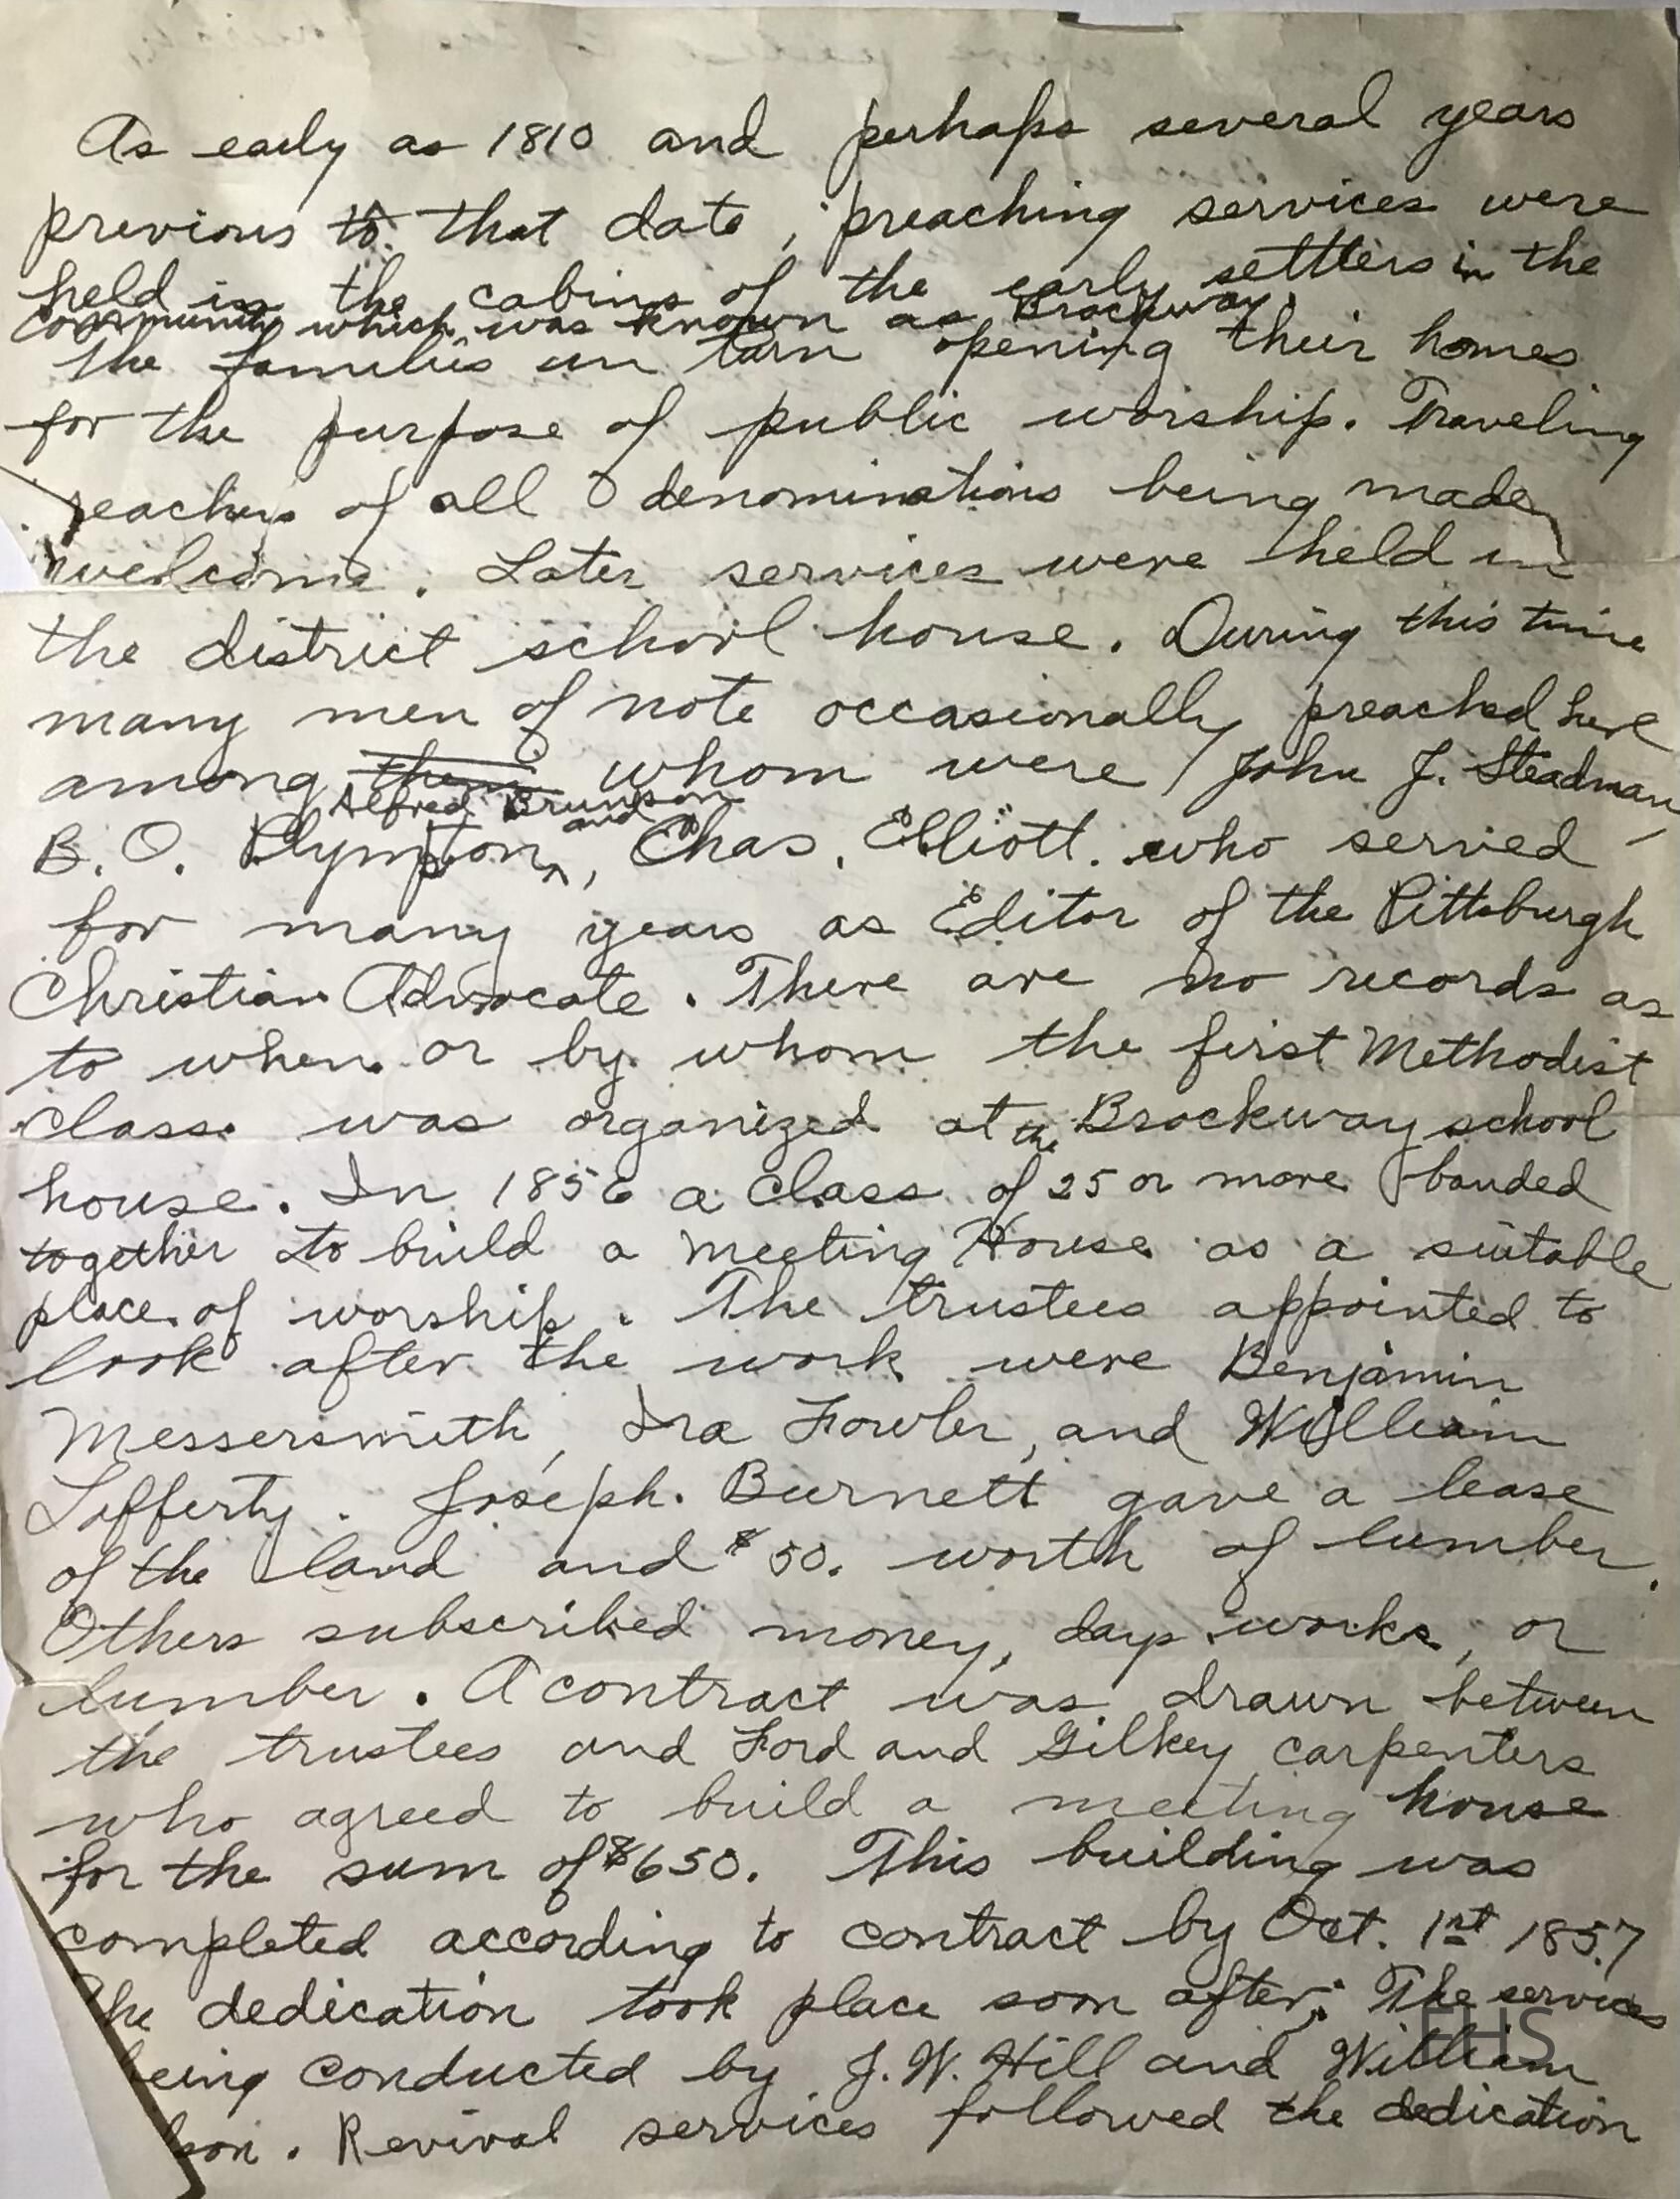 As early as 1810 and perhaps several years
previous to that date, preaching services were
held in the cabins of the early settlers in the
community which was known as Brockway.
The families in turn opening their homes
for the purpose of public worship. Traveling
reachers of all denominations being made
welcome. Later services were held in
the district school house. During this time
many men of note occasionally preached here
among them whom were John J. Steadman,
Alfred Brunson and
B. O. Plympton, Chas. Elliott. who served
for many years as Editor of the Pittsburgh
Christian Advocate. There are no records as
to when or by whom the first Methodist
class was organized at the Brockway school
house. In 1856 a class of 25 or more banded
together to build a Meeting House as a suitable
place of worship. The trustees appointed to
look after the work were Benjamin
Messersmith, Ira Fowler, and William
Lafferty. Joseph Burnett gave a lease
of the land and $50. worth of lumber.
Others subscribed money, days works, or
lumber. A contract was drawn between
the trustees and Ford and Gilkey carpenters
who agreed to build a meeting house
for the sum of $650. This building was
completed according to contract by Oct. 1st 1857
The dedication took place soon after. The services
being conducted by J. W. Hill and William
. Revival services followed the dedication
FHS